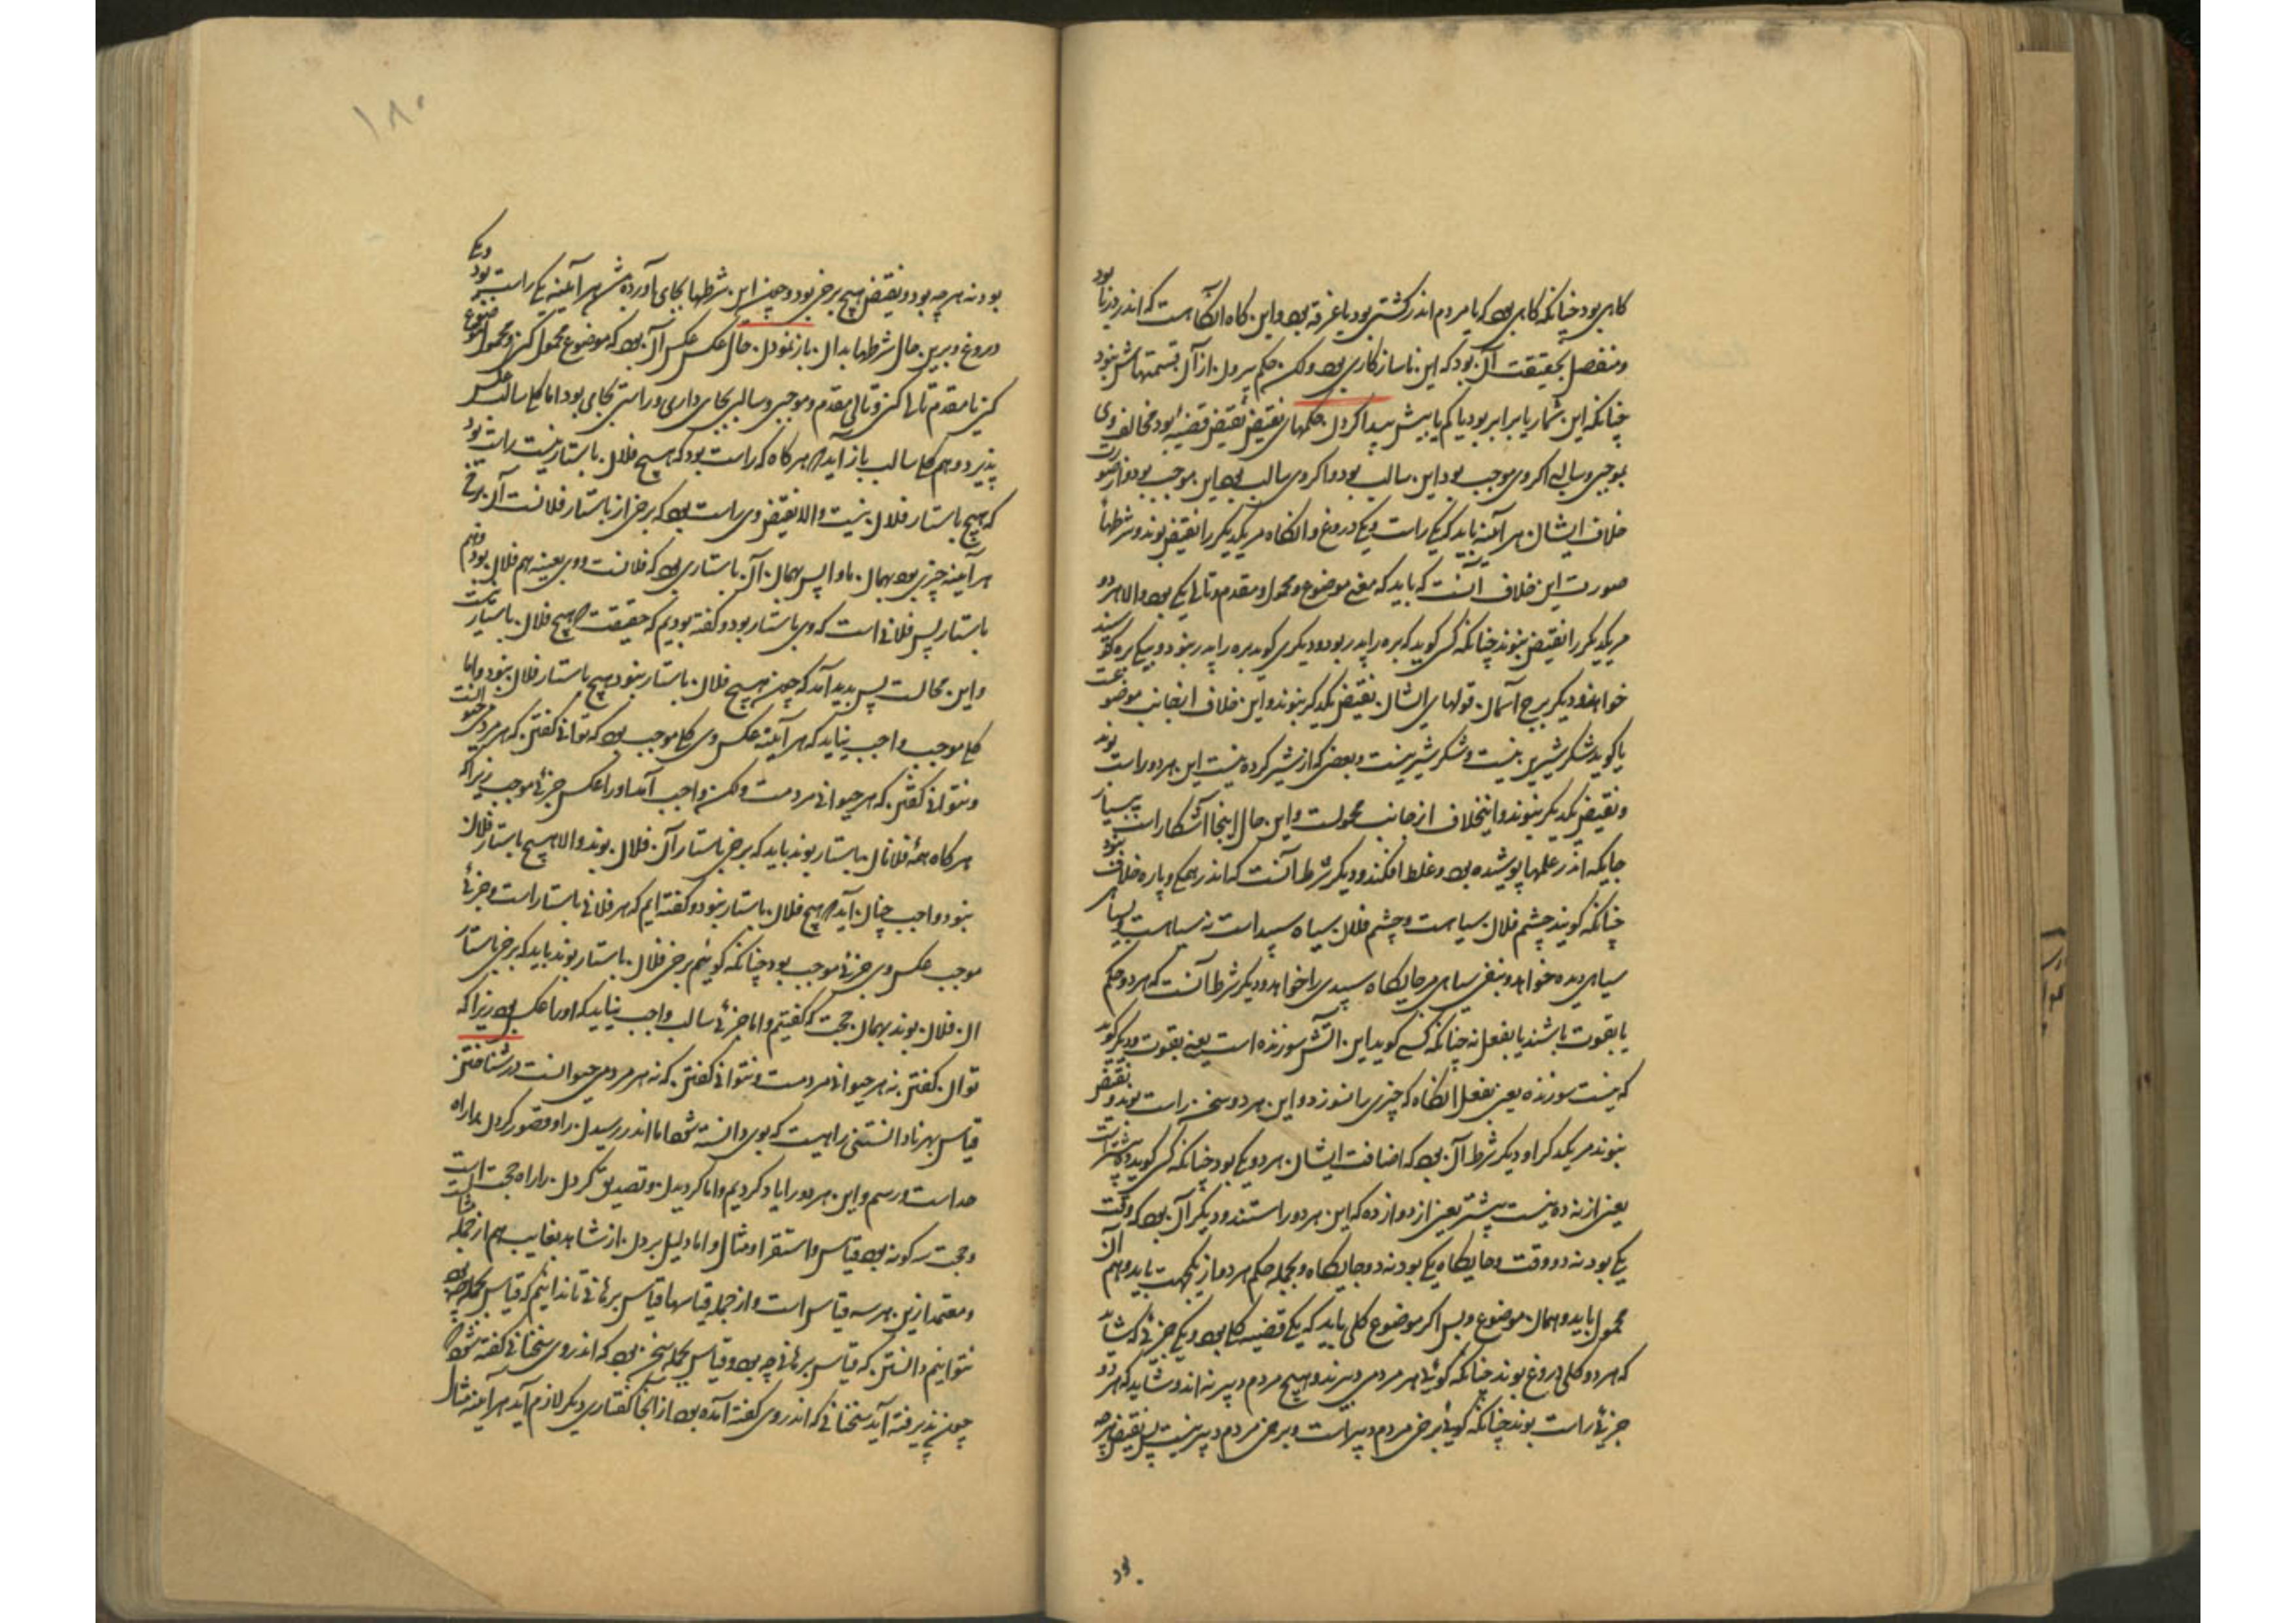 گاهی بود چنانکه گاهی بود که یا مردم اندر کشتی بود یا غرقه بود و این گاه آنگاهست که اندر دریا بود
و منفصل بحقیقت آن بود که این ناسازگاری بود ولکن حکم بیرون از آن قسمتهاش نبود
چنانکه این شمار یا برابر بود یا کم یا بیش پیدا کردن حکمهای نقیض نقیض قضیه بود مخالف وی
بموجبی و سالبی اگر وی موجب بود این سالب بود و اگر وی سالب بود این موجب بود و از صورت
خلاف ایشان هر آینه باید که یکی راست و یکی دروغ و آنگاه مر یکدیگر را نقیض بوند و شرطها
صورت این خلاف آنست که باید که معنی موضوع و محمول و مقدم و تالی یکی بود والا هر دو
مر یکدیگر را نقیض نبوند چنانکه کسی گوید که بره را پدر بود و دیگری گوید بره را پدر نبود و بیکی بره گوسپند
خواهند و دیگر برج آسمان قولهای ایشان نقیض یکدیگر نبوند و این خلاف از جانب موضوعست
یا گوید شکر شیرین نیست و شکر شیرینست و بعضی که از شیر کرده نیست این هر دو راست بوند
و نقیض یکدیگر نبوند و اینخلاف از جانب محمولست و این حال اینجا آشکارا است بسیار
جایگه اندر علمها پوشیده بود و غلط افکند و دیگر شرط آنست که اندر همگی و پاره خلاف نبود
چنانکه گویند چشم فلان سیاهست و چشم فلان سیاه سپید است نه سیاهست و بسیاهی
سیاهی دیده خواهد و بنفی سیاهی جایگاه سپیدی را خواهد و دیگر شرط آنست که هر دو حکم
یا بقوت باشند یا بفعل نه چنانکه کسی گوید این آتش سوزنده است یعنی بقوت و دیگر گوید
که نیست سوزنده یعنی بفعل آنگاه که چیزی را نسوزد و این هر دو سخن راست بوند و نقیض
نبوند مر یکدیگر را و دیگر شرط آن بود که اضافت ایشان هر دو یکی بود چنانکه کسی گوید ده بیشتر است
یعنی از نه ده نیست بیشتر یعنی از دوازده که این هر دو راستند و دیگر آن بود که وقت
یکی بود نه دو وقت و جایگاه یکی بود نه دو جایگاه و بجمله حکم هر دو از یکجهت باید و هم آن
محمول باید و همان موضوع و بس اگر موضوع کلی باید که یکی قضیه کلی بود و یکی جزئی که شاید
که هر دو کلی دروغ بوند چنانکه گوئی هر مردمی دبیرند و هیچ مردم دبیر نه اند و شاید که هر دو
جزئی راست بوند چنانکه گوئی برخی مردم دبیر است و برخی مردم دبیر نیست پس نقیض هرچه
بود
۱۸۰
بود نه هرچه بود و نقیض هیچ برخی بود و چون این شرطها بجای آورده شد هر آینه یکی راست بود و یکی
دروغ و برین حال شرطها بدان بازنمودن حال عکس عکس آن بود که موضوع محمول کنی و محمول موضوع
کنی یا مقدم تالی کنی و تالی مقدم و موجبی و سالبی بجای داری و راستی بجای بود اما کلی سالب عکس
پذیرد و هم کلی سالب باز آید هر گاه که راست بود که هیچ فلان باستار نیست راست بود
که هیچ باستار فلان نیست والا نقیض وی راست بود که برخی از باستار فلانست آن برخی
هر آینه چیزی بود بهمان بادا پس بهمان آن باستاری بود که فلانست و وی بعینه هم فلان بود و هم
باستار پس فلانی است که وی باستار بود و گفته بودیم که حقیقت هیچ فلان باستار نیست
و این محالست پس پدید آمد که چون هیچ فلان باستار نبود هیچ باستار فلان نبود و اما
کلی موجب واجب نیاید که هر آینه عکس وی کلی موجب بود که توانی گفتن که هر مردمی حیوانست
و نتوانی گفتن که هر حیوانی مردمست ولکن واجب آمد او را عکس جزئی موجب زیرا که
هر گاه همه فلانان باستار بوند باید که برخی باستار آن فلان بوند والا هیچ باستار فلان
نبود و واجب چنان آید هیچ فلان باستار نبود و گفته ایم که هر فلانی باستار است و جزئی
موجب عکس وی جزئی موجب بود چنانکه گوئیم برخی فلان باستار بوند باید که برخی باستار
ان فلان بوند بهمان حجت که گفتیم و اما جزئی سالب واجب نیاید که او را عکس بود زیرا که
توان گفتن نه هر حیوانی مردمست و نتوانی گفتن که نه هر مردمی حیوانست در شناختن
قیاس بهر نادانستنی راهیست که بوی دانسته شود اما اندر رسیدن را و تصور کردن را راه
حد است و رسم و این هر دو را یاد کردیم و اما گرویدن و تصدیق کردن را راه حجت است
و حجت سه گونه بود قیاس و استقرا و مثال و اما دلیل بردن از شاهد بغایب هم از جمله مثالست
و معتمد ازین هر سه قیاس است و از جمله قیاسها قیاس برهانی تا ندانیم که قیاس بجمله چه بود
نتوانیم دانستن که قیاس برهانی چه بود و قیاس بجمله سخنی بود که اندر وی سخنانی گفته شود
چون پذیرفته آید سخنانی که اندر وی گفته آمده بود از آنجا گفتاری دیگر لازم آید هر آینه مثال